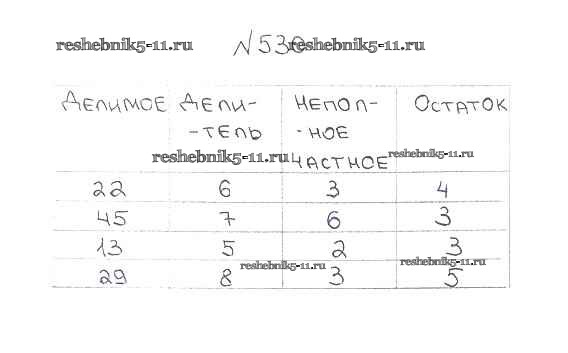 reshebnik5-11.ru №530 reshebnik5-11.ru
ДЕЛИМОЕ ДЕЛИ- НЕПОЛ- ОСТАТОК
-ТЕЛЬ -НОЕ
reshebnik5-11.ru ЧАСТНОЕ reshebnik5-11.ru
22 6 3 4
45 7 6 3
13 5 2 3
29 8 3 5
reshebnik5-11.ru reshebnik5-11.ru